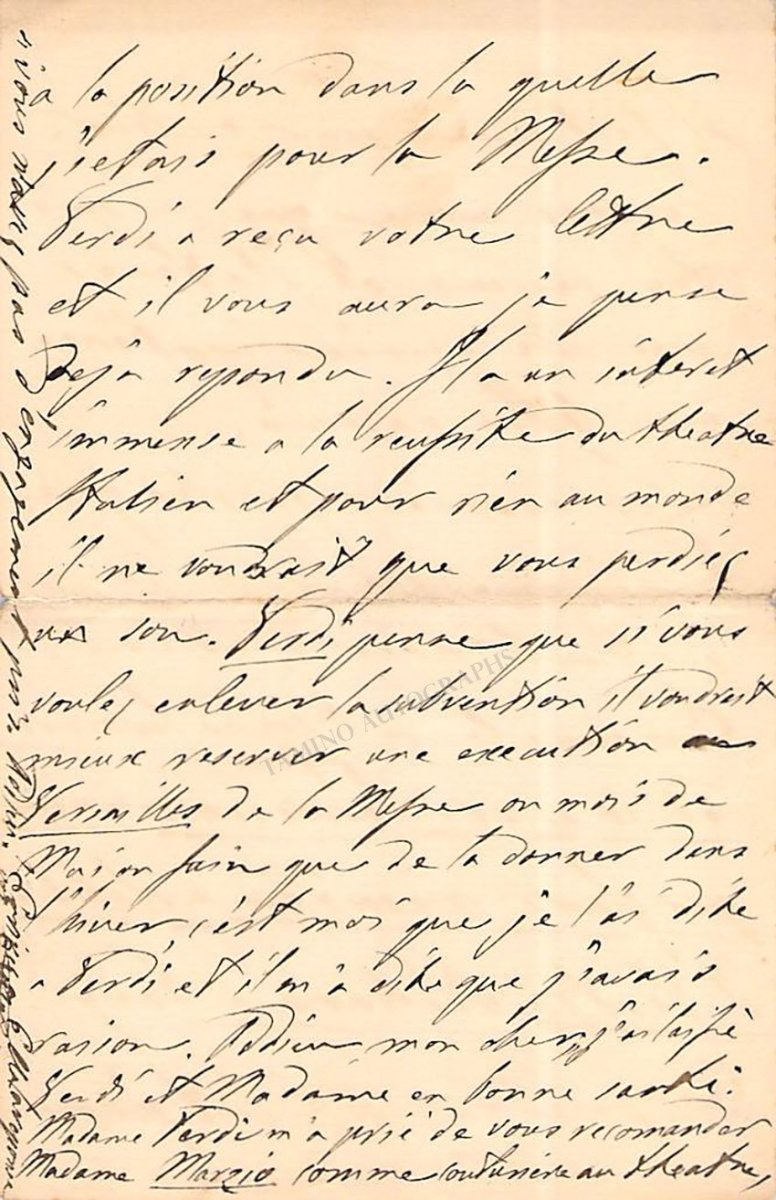 à la position dans la quelle
j'etais pour la Messe.
Verdi a reçu votre lettre
et il vous aura je pense
deja repondu. Il a un intéret
immense a la reussite du theatre
Italien et pour rien au monde
il ne voudrait que vous perdiez
un sou. Verdi pense que si vous
voulez enlever la subvention il vaudrait
mieux reserver une execution a
Versailles de la Messe au mois de
Mai ou Juin que de la donner dans
l'hiver, c'est moi que je l'ai dite
a Verdi et il m'a dite que j'avais
raison. Addieu mon cher, j'ai laissè
Verdi et Madame en bonne santé.
Madame Verdi m'a prié de vous recomander
Madame Marzio comme couturière au theatre,
si vous n'avez pas d'engagement pris
TAMINO AUTOGRAPHS